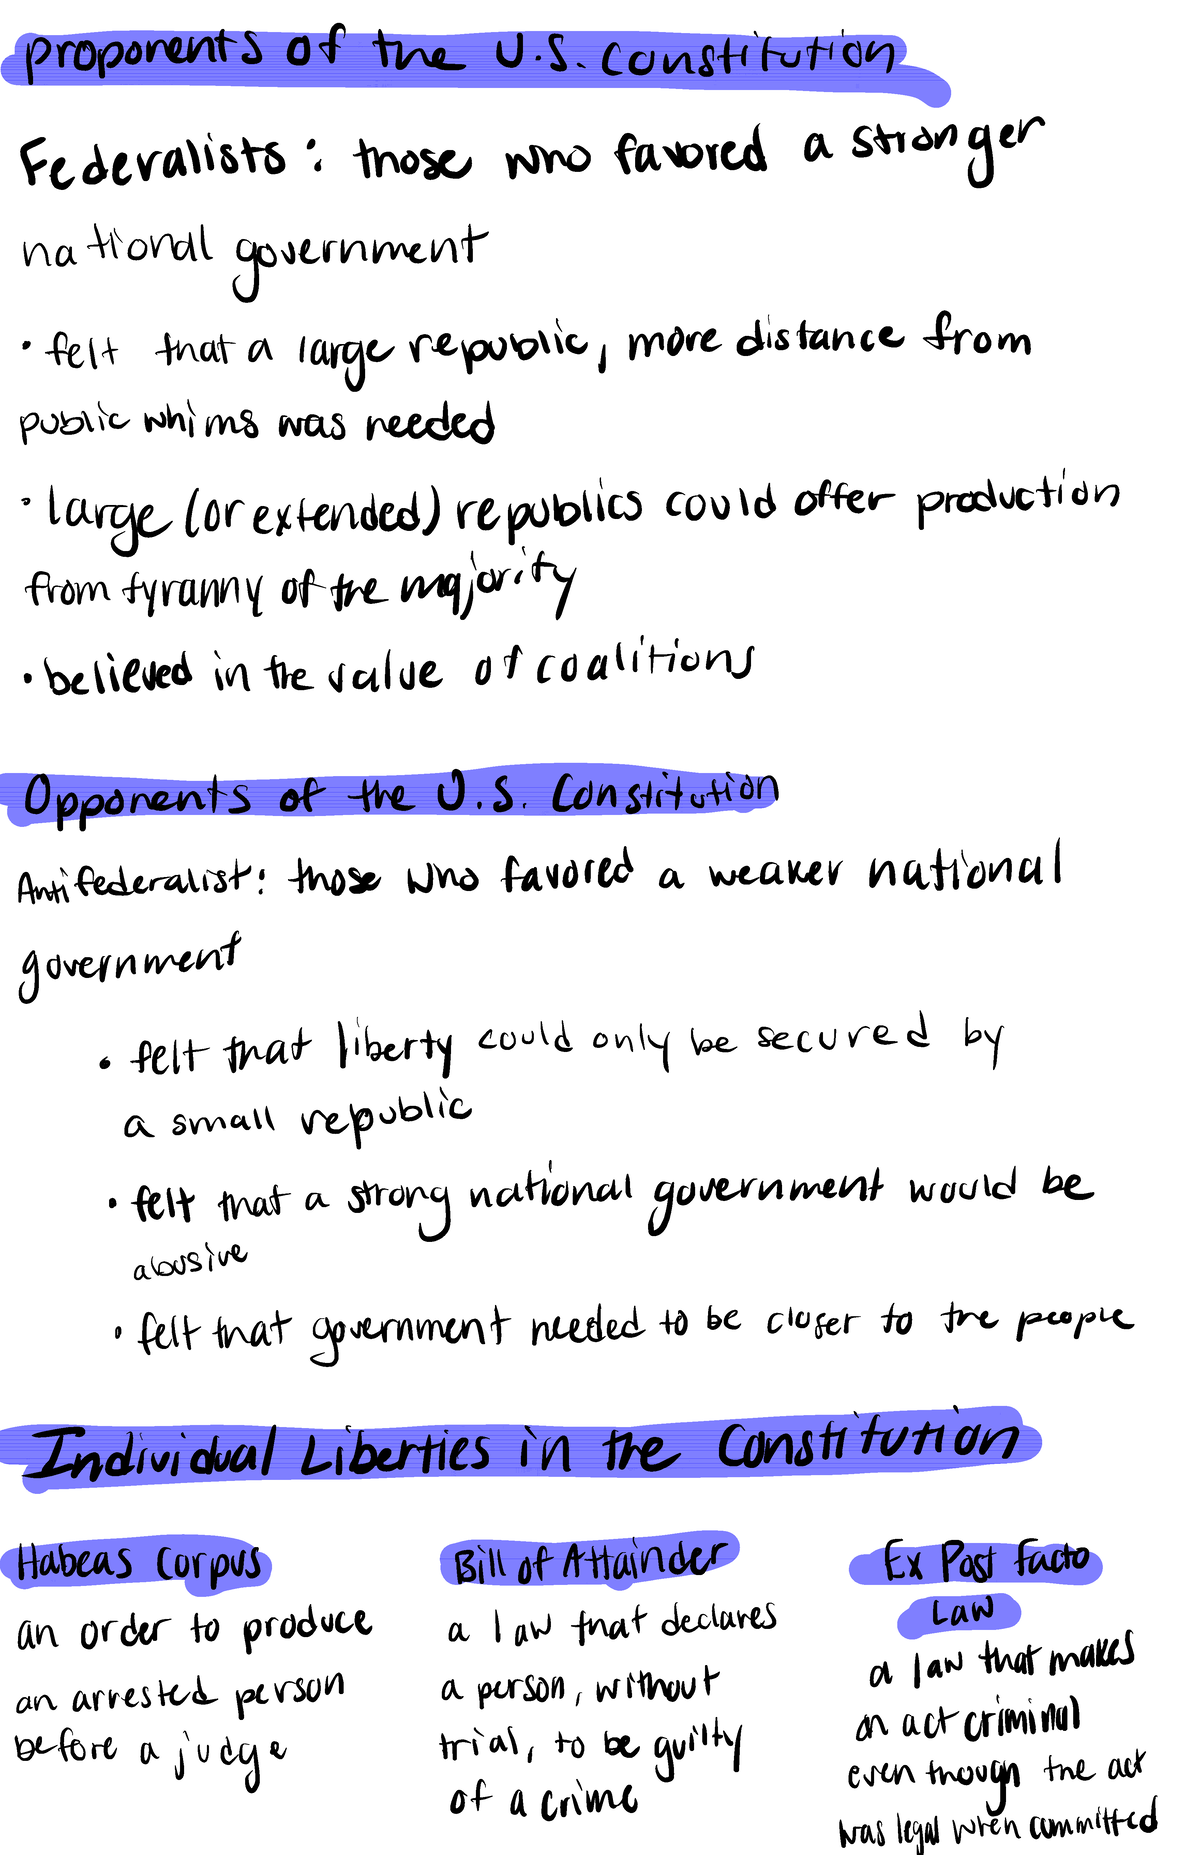 proponents of the U.S. constitution
Federalists: those who favored a stronger
national government
· felt that a large republic, more distance from
public whims was needed
· large (or extended) republics could offer production
from tyranny of the majority
· believed in the value of coalitions
Opponents of the U.S. Constitution
Antifederalist: those who favored a weaker national
government
· felt that liberty could only be secured by
a small republic
· felt that a strong national government would be
abusive
· felt that government needed to be closer to the people
Individual Liberties in the Constitution
Habeas Corpus
an order to produce
an arrested person
before a judge
Bill of Attainder
a law that declares
a person, without
trial, to be guilty
of a crime
Ex Post facto
Law
a law that makes
an act criminal
even though the act
was legal when committed